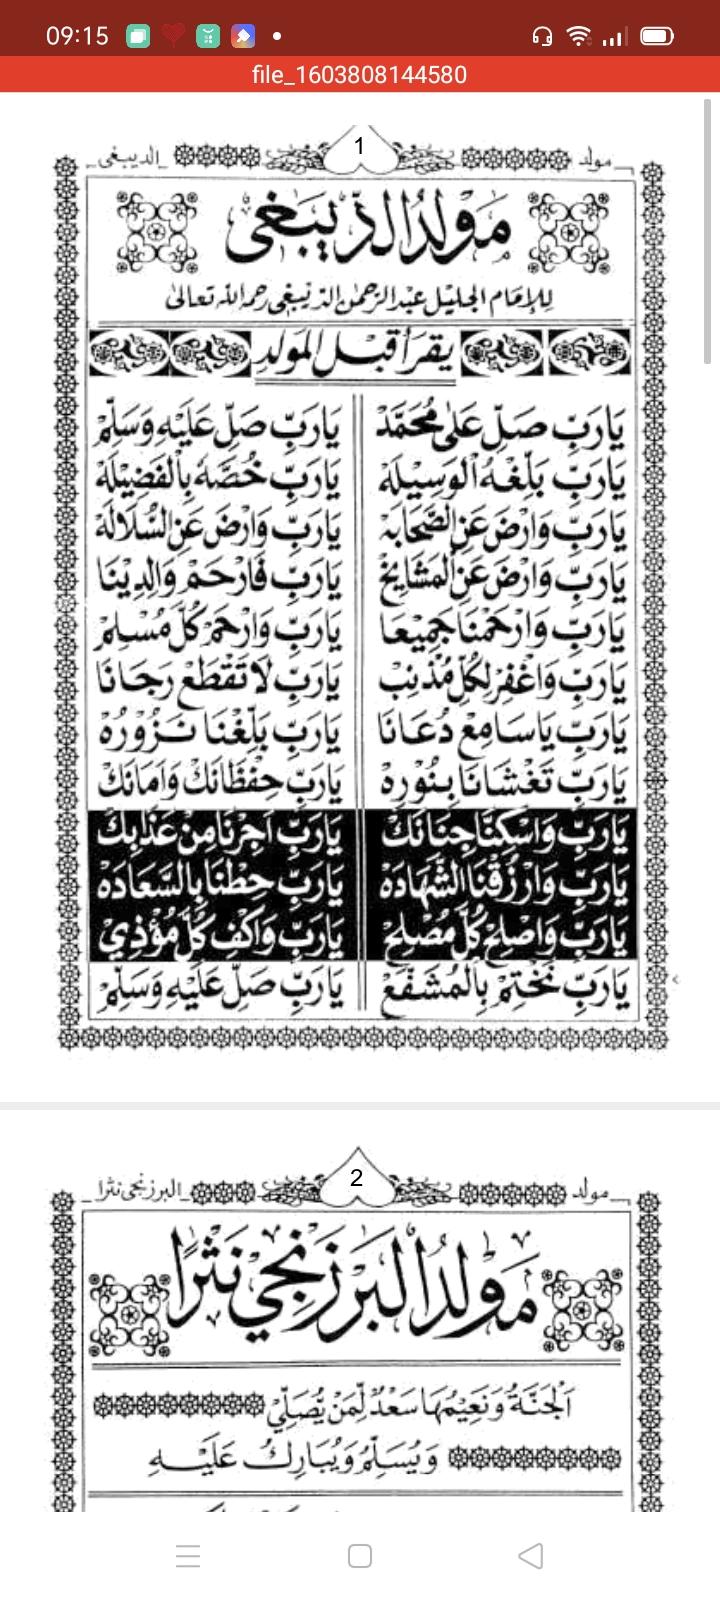 09:15
file_1603808144580
مولد 1 الديبغى
مَولدُ الدِّيبَغى
لِلإمَام الجَليْل عبْد الرّحمٰن الدّيْبغى رحمه الله تعالىٰ
يقرَأ قبْل المَولد
يَارَبِّ صَلِّ عَلىٰ مُحَمَّدْ يَارَبِّ صَلِّ عَلَيْهِ وَسَلِّمْ
يَارَبِّ بَلِّغْهُ الْوَسِيْلَهْ يَارَبِّ خُصَّهُ بِالْفَضِيْلَهْ
يَارَبِّ وَارْضَ عَنِ الصَّحَابَهْ يَارَبِّ وَارْضَ عَنِ السُّلَالَهْ
يَارَبِّ وَارْضَ عَنِ الْمَشَايِخْ يَارَبِّ فَارْحَمْ وَالِدِيْنَا
يَارَبِّ وَارْحَمْنَا جَمِيْعَا يَارَبِّ وَارْحَمْ كُلَّ مُسْلِمْ
يَارَبِّ وَاغْفِرْ لِكُلِّ مُذْنِبْ يَارَبِّ لَاتَقْطَعْ رَجَانَا
يَارَبِّ يَاسَامِعْ دُعَانَا يَارَبِّ بَلِّغْنَا نَزُوْرُهْ
يَارَبِّ تَغْشَانَا بِنُوْرِهْ يَارَبِّ حِفْظَانَكْ وَاَمَانَكْ
يَارَبِّ وَاسْكِنَّا جِنَانَكْ يَارَبِّ اَجِرْنَا مِنْ عَذَابِكْ
يَارَبِّ وَارْزُقْنَا الشَّهَادَهْ يَارَبِّ حِطْنَا بِالسَّعَادَهْ
يَارَبِّ وَاصْلِحْ كُلَّ مُصْلِحْ يَارَبِّ وَاكْفِ كُلَّ مُؤْذِيْ
يَارَبِّ نَخْتِمْ بِالْمُشَفَّعْ يَارَبِّ صَلِّ عَلَيْهِ وَسَلِّمْ
مولد 2 البرزنجى نثرا
مَولدُ البَرزَنجِي نَثْرًا
اَلْجَنَّةُ وَنَعِيْمُهَا سَعْدٌ لِّمَنْ يُّصَلِّيْ
وَيُسَلِّمُ وَيُبَارِكُ عَلَيْهِ